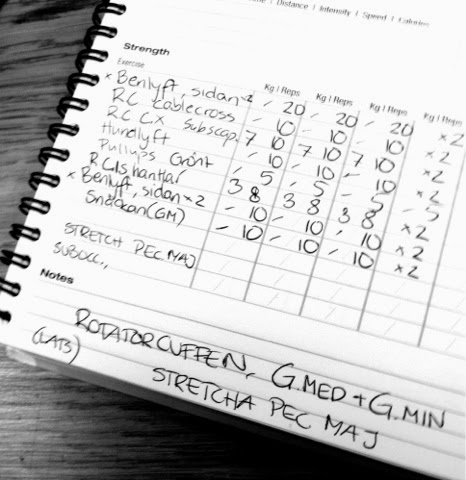 Distance | Intensity | Speed | Calories
Strength
Exercise Kg | Reps Kg | Reps Kg | Reps Kg | Reps
x Benlyft, sidan x2 - 20 - 20 - 20 x2
RC cablecross - 10 - 10 - 10 x2
RC CX Subscap. 7 10 7 10 7 10 x2
Hundlyft - 10 - 10 - 10 x2
Pullups Grönt - 5 - 5 - 5 - 5
RC 3 8 3 8 3 8 x2
x Benlyft, sidan x2 - 10 - 10 - 10 x2
Snäckan (GM) - 10 - 10 - 10 x2
STRETCH PEC MAJ
SUBOCC.,
Notes
ROTATORCUFFEN, G.MED + G.MIN
(LATS) STRETCHA PEC MAJ